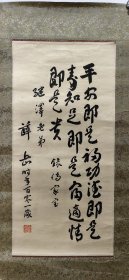 平安即是福功德即是
壽知足即是富適情
即是貴 錄傳家宝
澤老弟
薛岳 時年百零一歲